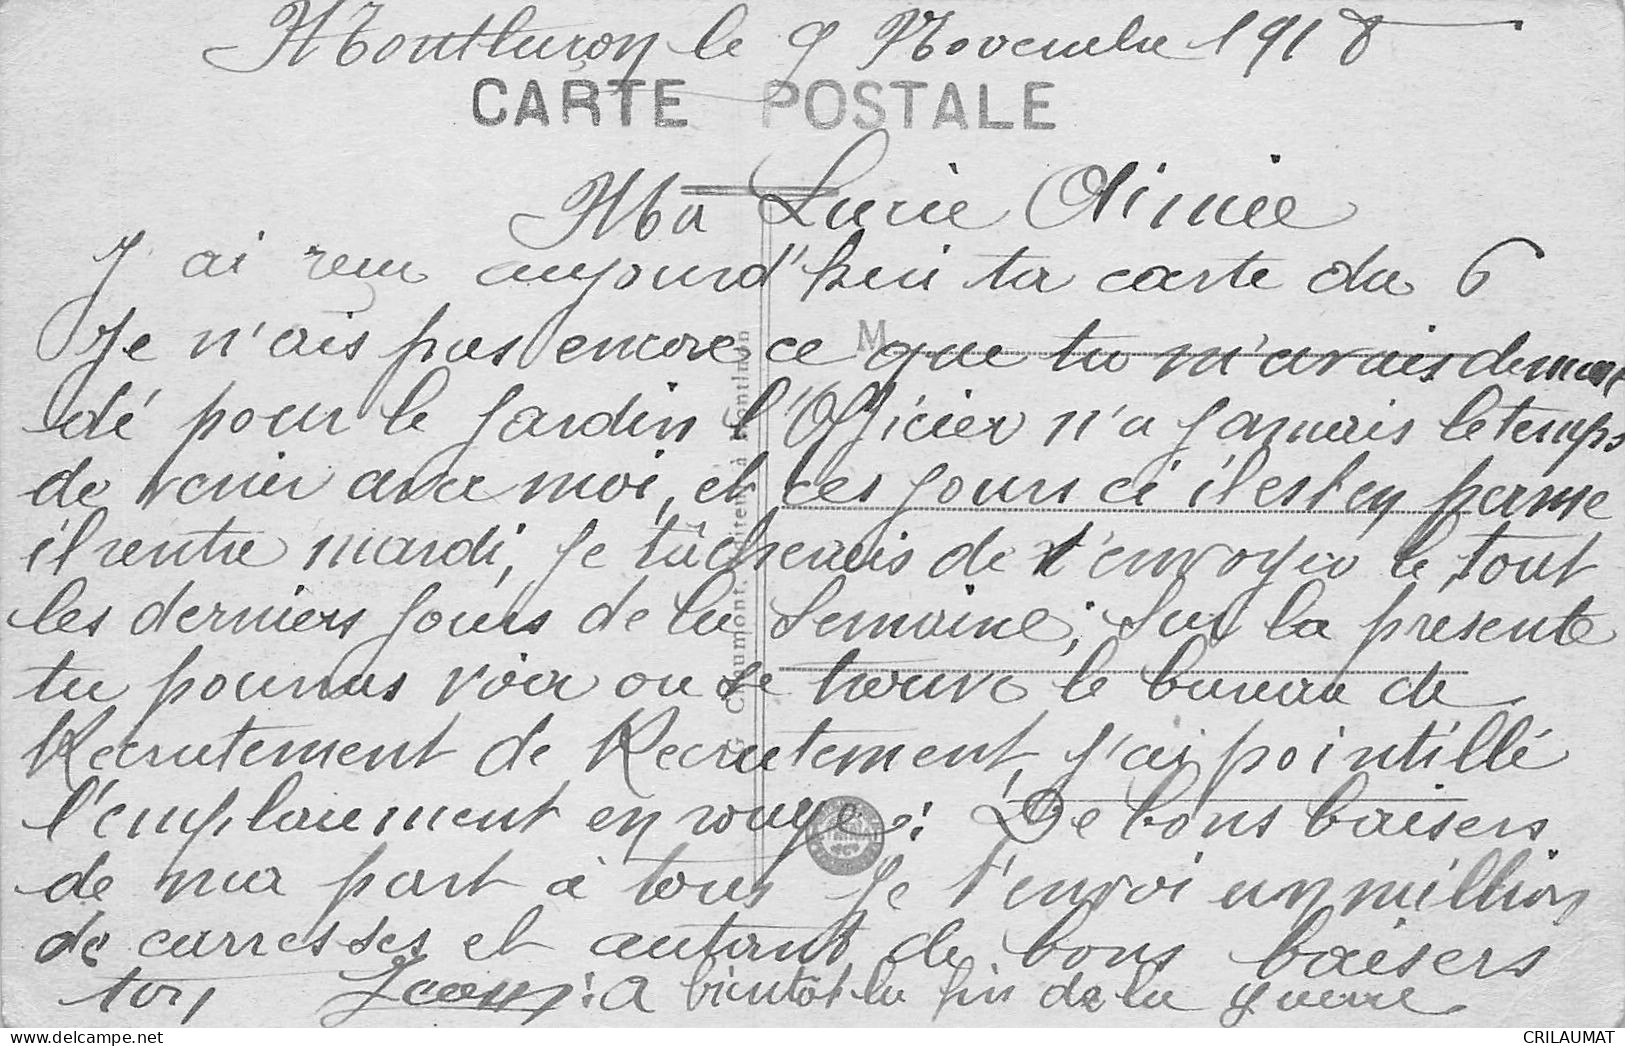 Montluçon le 9 Novembre 1918
CARTE POSTALE
Ma Lucie Aimée
J'ai reçu aujourd'hui ta carte du 6
Je n'ais pas encore ce que tu m'avais deman
dé pour le Jardin l'Officier n'a Jamais le temps
de venir avec moi, et ces Jours ci il est en perme
il rentre mardi, Je tâcherais de t'envoyer le tout
les derniers Jours de la Semaine; Sur la présente
tu pourras voir ou se trouve le bureau de
Recrutement de Recrutement, J'ai pointillé
l'emplacement en rouge: De bons baisers
de ma part à tous Je t'envoi un million
de carresses et autant de bons baisers
ton Jean: A bientôt la fin de la guerre
M
CRILAUMAT